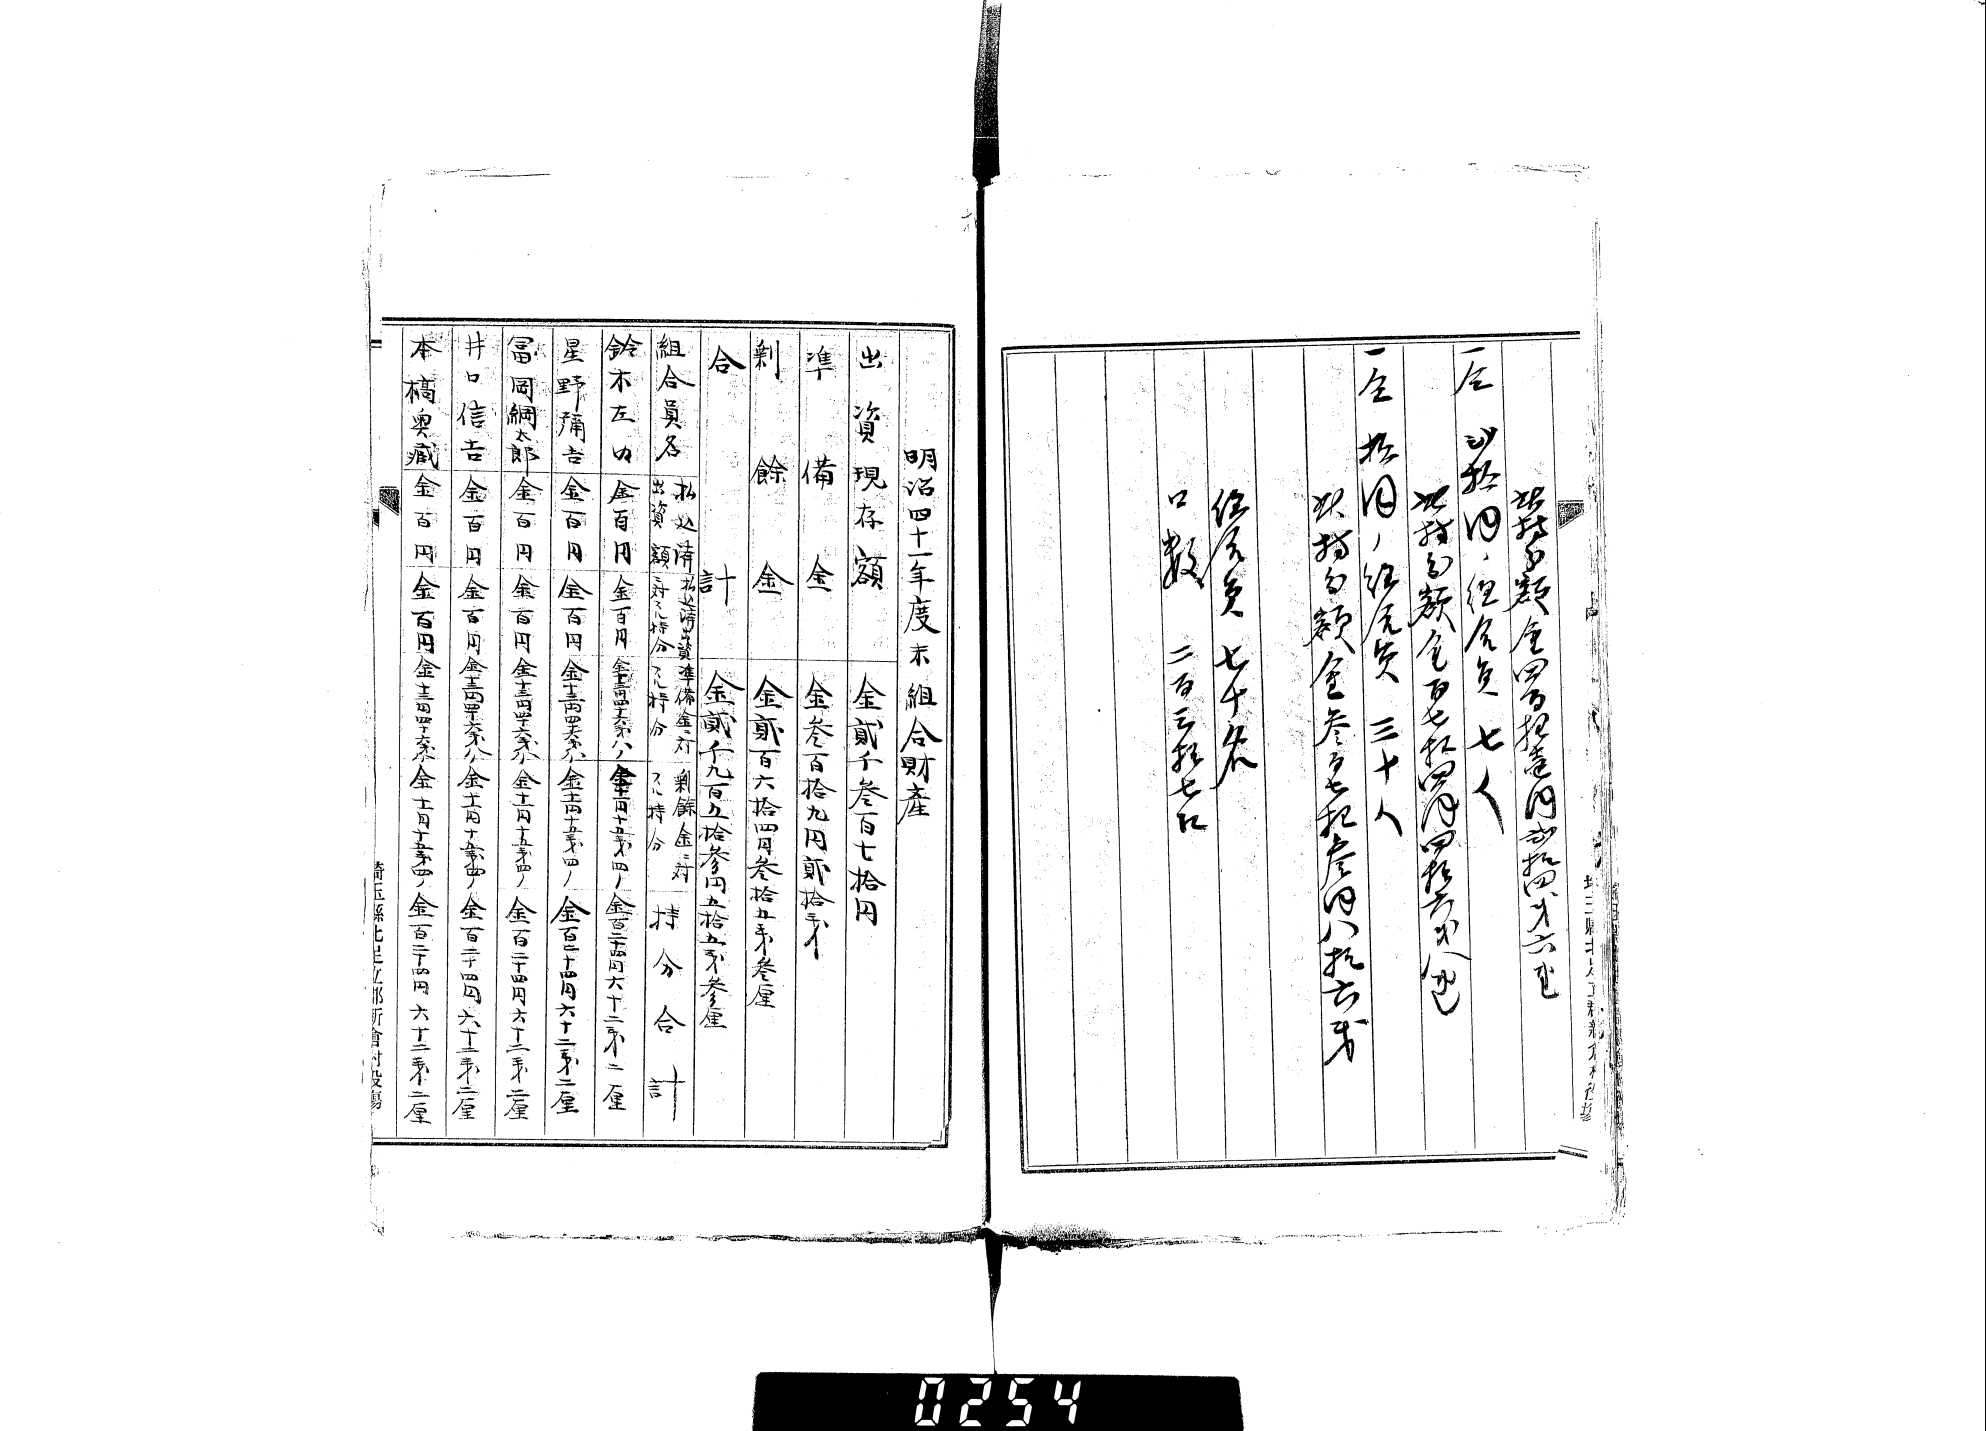 此持分額金四百拾壱円弐拾四銭六厘
一仝 弐拾円ノ組合員 七人
此持分額金百七拾四円四拾六銭八厘
一仝 拾円ノ組合員 三十人
此持分額金参百七拾参円八拾六銭
組合員 七十名
口数 二百三拾七口
明治四十一年度末組合財産
出資現存額 金貳千参百七拾円
準備金 金参百拾九円貳拾銭
剰餘金 金貳百六拾四円参拾五銭参厘
合計 金貳千九百五拾参円五拾五銭参厘
組合員名 払込済出資額 払込済出資ニ対スル持分 準備金ニ対スル持分 剰餘金ニ対スル持分 持分合計
鈴木左内 金百円 金百円 金十三円四十六銭八ノ 金十一円十五銭四ノ 金百二十四円六十二銭二厘
星野彌吉 金百円 金百円 金十三円四十六銭八ノ 金十一円十五銭四ノ 金百二十四円六十二銭二厘
冨岡綱太郎 金百円 金百円 金十三円四十六銭八 金十一円十五銭四ノ 金百二十四円六十二銭二厘
井口信吉 金百円 金百円 金十三円四十六銭八 金十一円十五銭四ノ 金百二十四円六十二銭二厘
本橋奥蔵 金百円 金百円 金十三円四十六銭八 金十一円十五銭四ノ 金百二十四円六十二銭二厘
埼玉縣北足立郡新倉村役場
0254